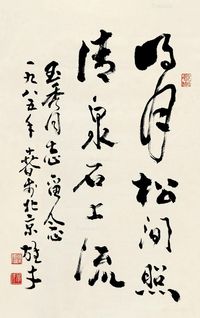 明月松间照
清泉石上流
玉秀同志留念
一九八五年春书北京雄才